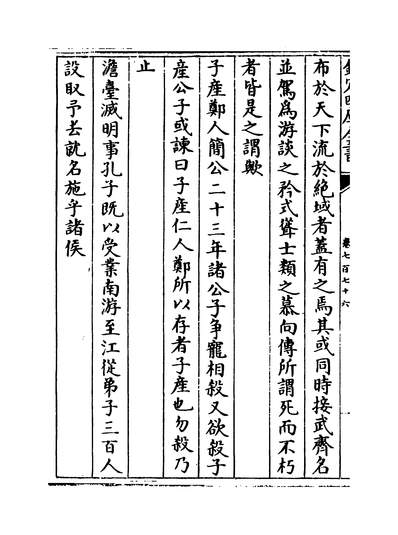 欽定四庫全書
卷七百七十六
布於天下流於絶域者蓋有之焉其或同時接武齊名
並駕爲游談之矜式聳士類之慕向傳所謂死而不朽
者皆是之謂歟
子產鄭人簡公二十三年諸公子争寵相殺又欲殺子
產公子或諫曰子產仁人鄭所以存者子產也勿殺乃
止
澹臺滅明事孔子既以受業南游至江從弟子三百人
設取予去就名施乎諸侯